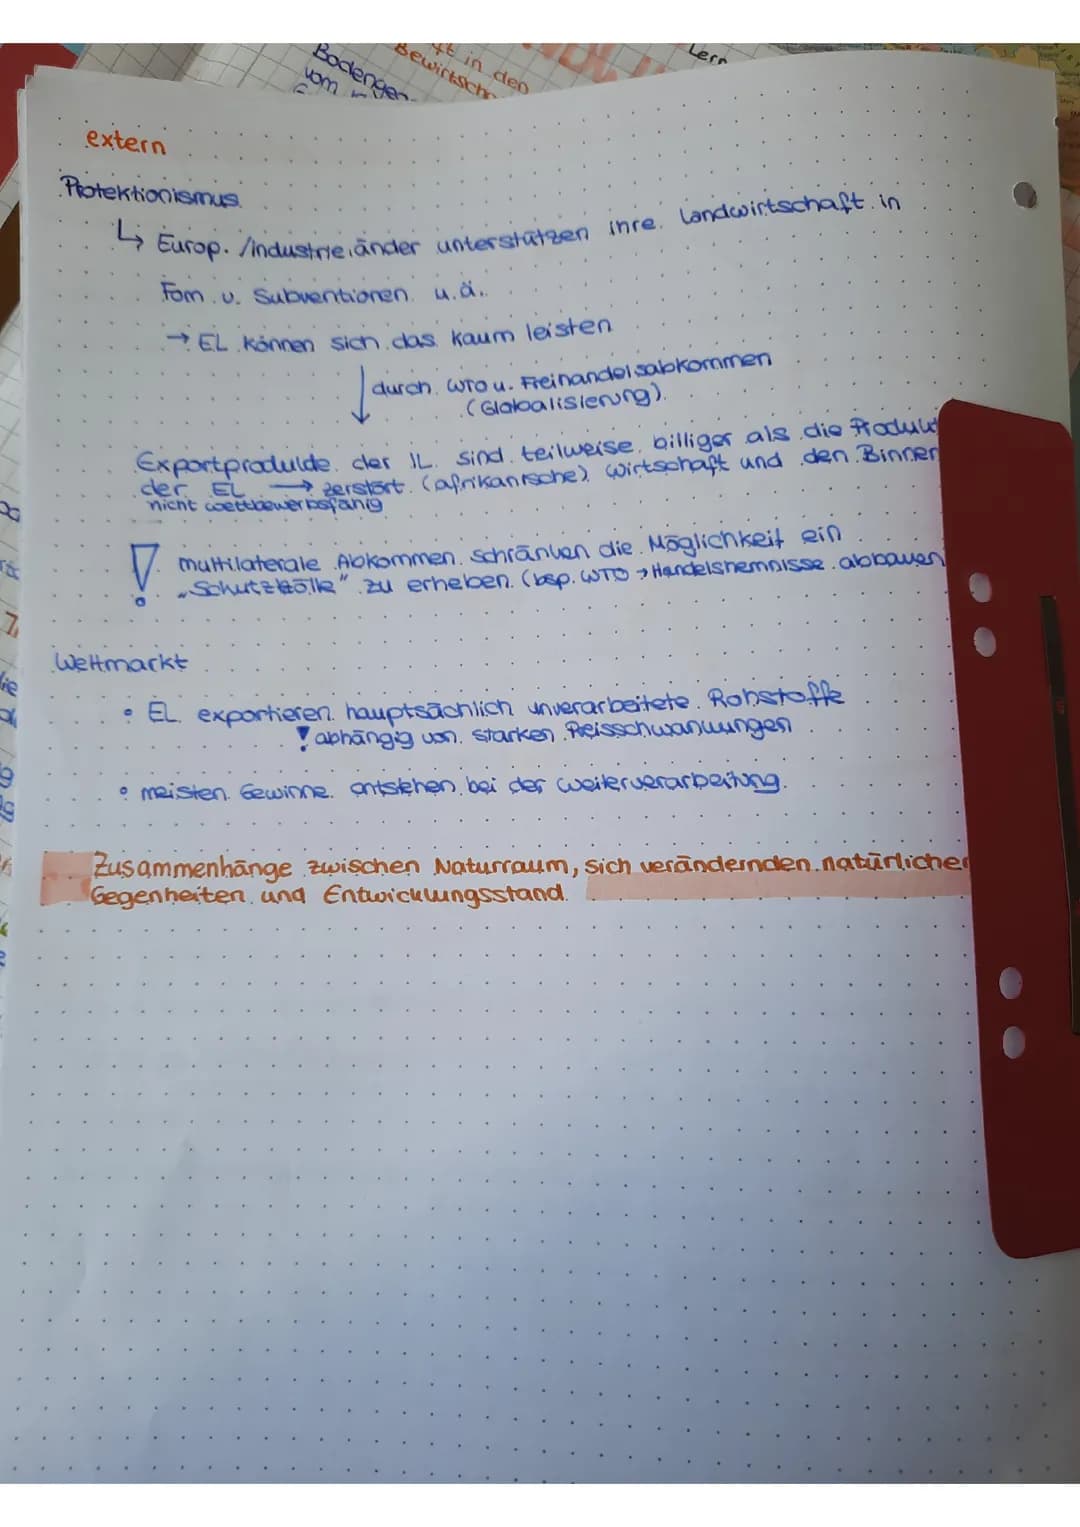 ft in den
Bewirtsch
Lern
Bodengen
vom
extern
Protektionismus
↳ Europ. /Industrieländer unterstützen ihre Landwirtschaft in
Fom v. Subventionen u.ä.
→ EL können sich das kaum leisten
durch WTO u. Freihandelsabkommen
(Globalisierung)
Exportprodukte der IL sind teilweise billiger als die Produkt
der EL → zerstört (afrikanische) Wirtschaft und den Binnen
nicht wettbewerbsfähig
! multilaterale Abkommen schränken die Möglichkeit ein
„Schutzzölle" zu erheben (bsp. WTO → Handelshemnisse abbauen
Weltmarkt
• EL exportieren hauptsächlich unverarbeitete Rohstoffe
! abhängig von starken Preisschwankungen
• meisten Gewinne entstehen bei der Weiterverarbeitung
Zusammenhänge zwischen Naturraum, sich verändernden natürlichen
Gegenheiten und Entwicklungsstand